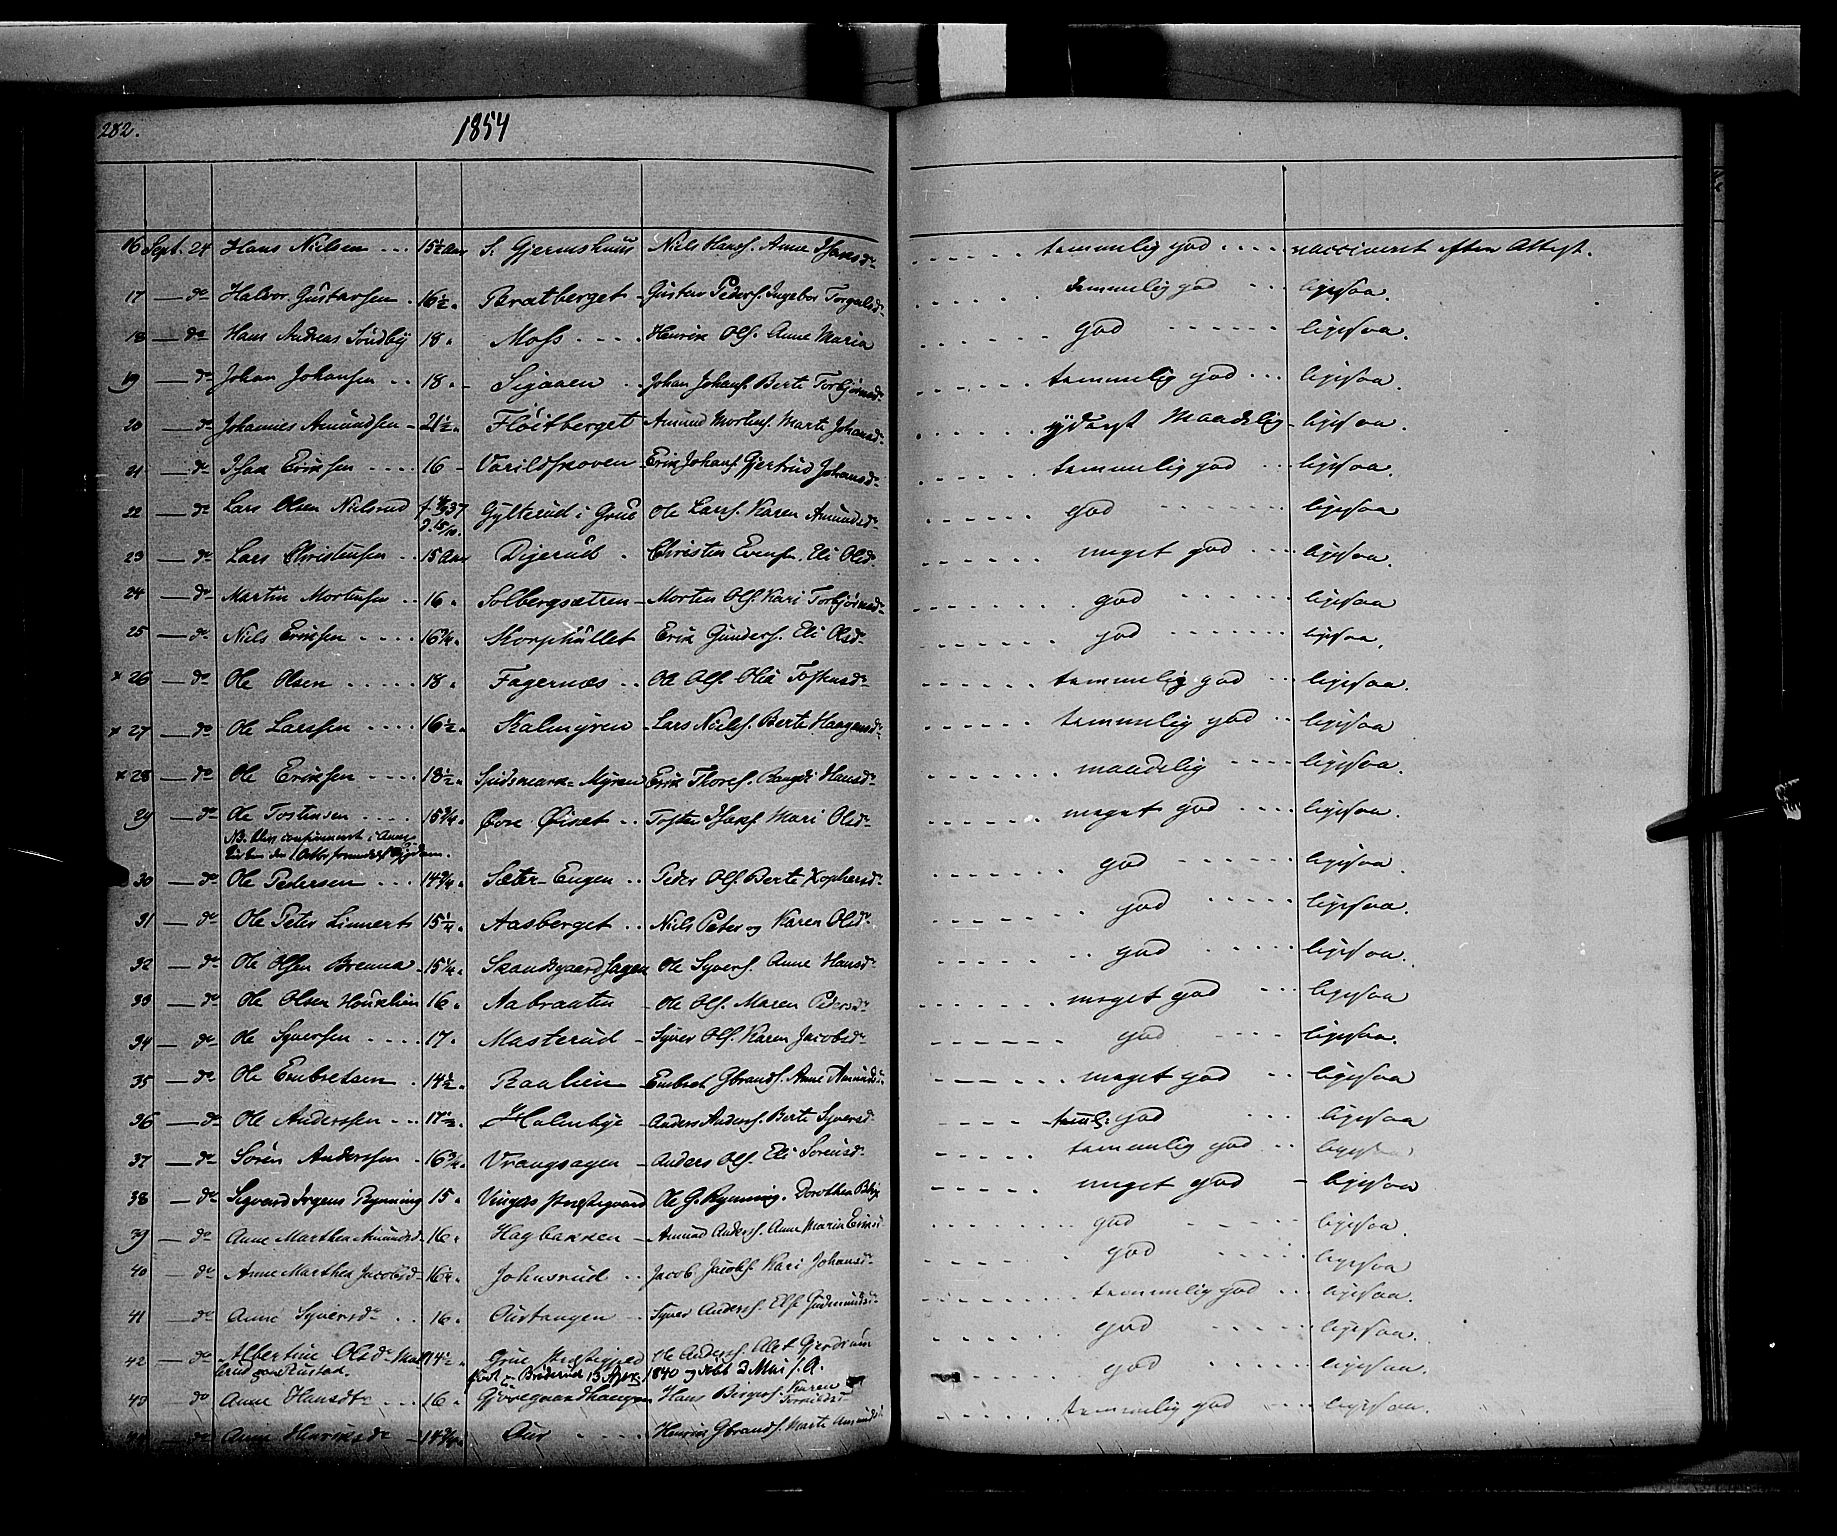 282. 1854
16 Sept. 24 Hans Nielsen 15½ Aar S. Gjermshuus Niels Hansf. Anne Isaksdr temmelig god vaccineret efter Attest.
17 — do Halvor Gustavsen 16½ Bratberget Gustav Pedersf. Ingebor Torgalsdr temmelig god ligesaa.
18 — do Hans Andreas Sundby 18 Moss Henrik Olsf. Anne Maria god ligesaa.
19 — do Johan Johansen 18 Sigaaen Johan Johansf. Berte Torbjørnsdr temmelig god ligesaa.
20 — do Johannes Amundsen 21½ Fløitberget Amund Mortensf. Marte Johansdr yderst Maadelig ligesaa.
21 — do Isak Eriksen 16 Varildskoven Erik Johansf. Gjertrud Johansdr temmelig god ligesaa.
22 — do Lars Olsen Nilsrud Gylterud i Grue Ole Larsf. Karen Amundsdr god ligesaa
23 — do Lars Christensen 15 Aar Digerud Christen Evensen. Eli Olsdr meget god ligesaa.
24 — do Martin Mortensen 16 Solbergsætren Morten Olsf. Kari Torbjørnsdr god ligesaa
25 — do Niels Eriksen 16¾ Skorphullet Erik Gundersf. Eli Olsdr god ligesaa.
× 26 — do Ole Olsen 18 Fagernæs Ole Olsf. Olia Tostensdr temmelig god ligesaa.
× 27 — do Ole Larssen 16½ Kalmyren Lars Nielsf. Berte Haagensdr temmelig god ligesaa
× 28 — do Ole Eriksen 18½ Spidsmark-Myren Erik Thoresf. Hansdr maadelig ligesaa.
29 — do Ole Tostensen 15¾ Øvre Øiset Tosten Isaksf. Mari Olsdr meget god ligesaa.
NB. blev confirmeret i
30 — do Ole Pedersen 14¾ Sæter-Engen Peder Olsf. Berte Xophersdr god ligesaa
31 — do Ole Peter Linnerts 15¼ Aasberget Niels Peter og Karen Olsdr god ligesaa.
32 — do Ole Olsen Brenna 15¼ Skandsgaardsagen Ole Syversf. Anne Hansdr god ligesaa.
33 — do Ole Olsen 16 Aabraaten Ole Olsf. Maren Pedersdr meget god ligesaa
34 — do Ole Syversen 17. Masterud Syver Olsf. Karen Jacobsdr god ligesaa.
35 — do Ole Embretsen 14½ Raalien Embret Gbrandsf. Anne Amundsdr meget god ligesaa
36 — do Ole Anderssen 17½ Holmbye Anders Andersf. Berte Syversdr teml: god ligesaa
37 — do Søren Anderssen 16¾ Vrangsagen Anders Olsf. Eli Sørensdr temmelig god ligesaa
38 — do Sigvard Jrgens Rynning 15 Vinger Præstegaard Ole G. Rynning. Dorothea meget god ligesaa
39 — do Anne Marthea Amundsd 16 Hagbakken Amund Andersf. Anne Maria god ligesaa.
40 — do Anne Marthea Jacobsd 16¼ Johnsrud Jacob Jacobsf. Kari Johansdr god ligesaa
41 — do Anne Syversdr 16 Austangen Syver Andersf. Else Gudmundsdr temmelig god ligesaa.
42 — do Albertine Olsdr 14½ Grue Præstegjeld Ole Andersf. god ligesaa.
født 13 1840 døbt 2 Mai s. A.
43 — do Anne Hansdtr 16 Hans Birgersf. Karen god ligesaa.
44 — do Anne Henriksdr 14¾ Our Henrik Gbrandsf. Marte Amundsdr temmelig god ligesaa.